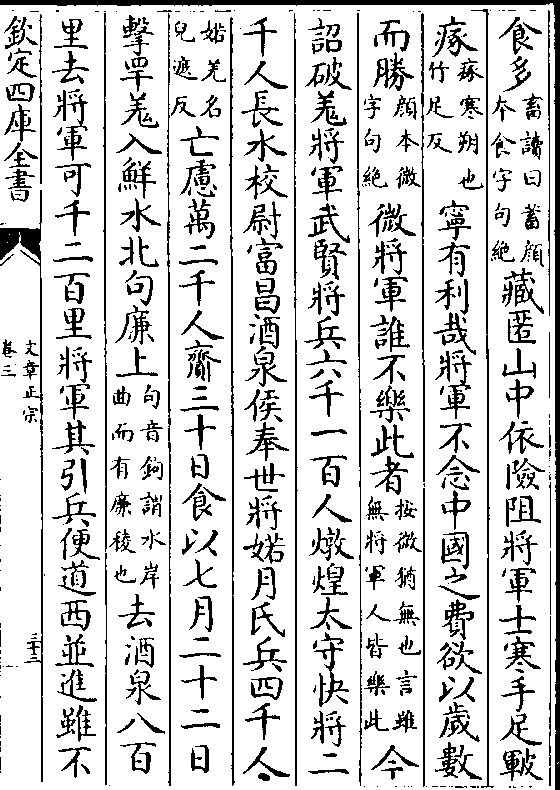 食多畜讀曰蓄顔本食字句絶藏匿山中依險阻將軍士寒手足皸
瘃瘃寒朔也竹足反寧有利哉將軍不念中國之費欲以歲數
而勝顔本微字句絶微將軍誰不樂此者按微猶無也言雖無將軍人皆樂此今
詔破羌將軍武賢將兵六千一百人燉煌太守快將二
千人長水校尉富昌酒泉侯奉世將婼月氏兵四千人
婼羌名兒遮反亡慮萬二千人齎三十日食以七月二十二日
擊䍐羌入鮮水北句廉上句音鉤謂水岸曲而有廉稜也去酒泉八百
里去將軍可千二百里將軍其引兵便道西並進雖不
欽定四庫全書
文章正宗
卷三
三十三